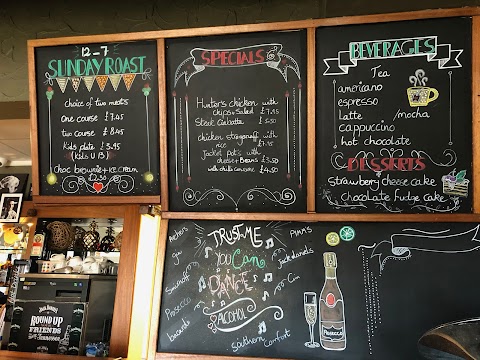 12-7
SUNDAY ROAST
choice of two meats
one course £7.45
two course £8.45
Kids plate £3.95
(Kids U13)
choc brownie + ice cream
£2.50
SPECIALS
Hunter's chicken with
chips + salad £7.95
Steak Ciabatta £5.50
chicken stroganoff with
rice £7.95
Jacket pot's with
cheese + beans £3.50
with chilli con carne £4.50
BEVERAGES
Tea
americano
espresso
Latte /mocha
cappuccino
hot chocolate
DESSERTS
strawberry cheese cake
chocolate Fudge cake
Archers
Gin
Smirnoff
Prosecco
bacardi
TRUST ME
YOU Can
DANCE
ALCOHOL
Southern Comfort
Jack daniels
Gin
PIMM'S
PROSECCO
JACK DANIEL'S
ROUND UP
FRIENDS
Tennessee